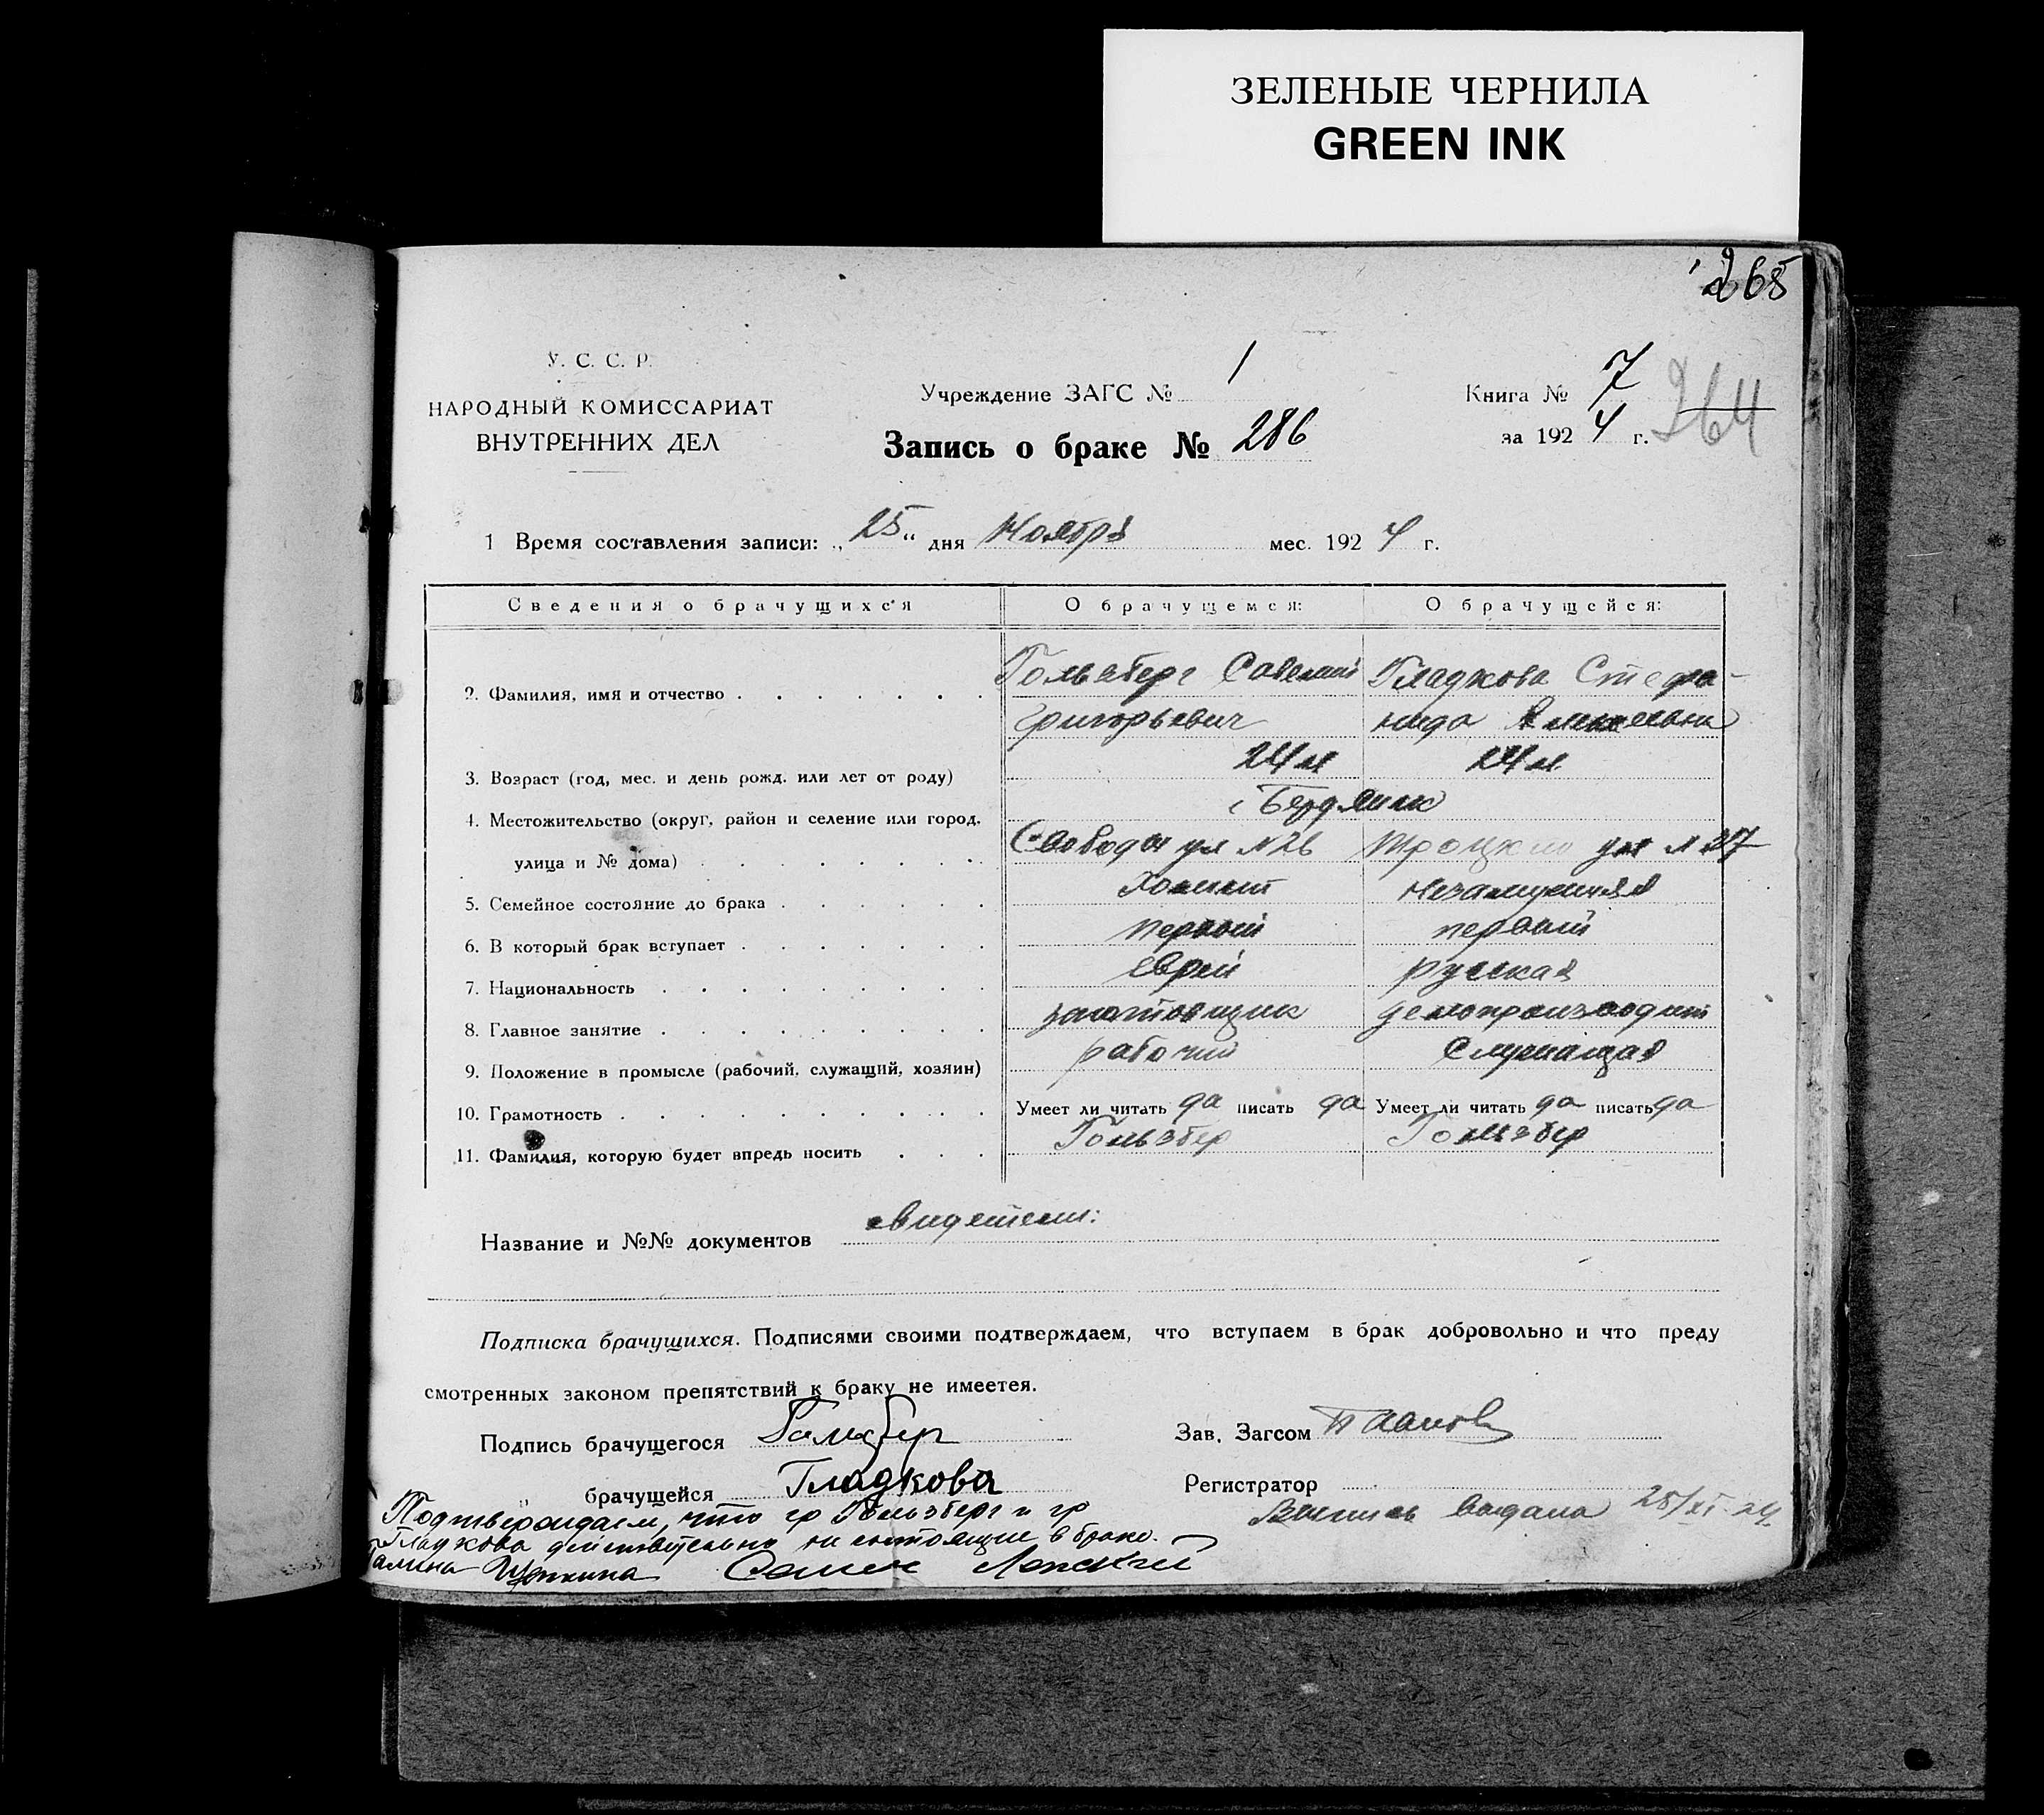 ЗЕЛЕНЫЕ ЧЕРНИЛА
GREEN INK
265
У. С. С. Р.
НАРОДНЫЙ КОМИССАРИАТ
ВНУТРЕННИХ ДЕЛ
Учреждение ЗАГС № 1
Запись о браке № 286
Книга № 7
за 1924 г.
264
1 Время составления записи: „25“ дня Ноября мес. 1924 г.
Сведения о брачущихся О брачущемся: О брачущейся:
2. Фамилия, имя и отчество Гользберг Савелий Гладкова Стефа-
Григорьевич нида
3. Возраст (год, мес. и день рожд. или лет от роду) 24 л 24 л
4. Местожительство (округ, район и селение или город, г Бердянск
улица и № дома) Свободы ул № 26 Троцкого ул № 37
5. Семейное состояние до брака Холост незамужняя
6. В который брак вступает первый первый
7. Национальность еврей русская
8. Главное занятие заготовщик делопроизводит
9. Положение в промысле (рабочий, служащий, хозяин) рабочий Служащая
10. Грамотность Умеет ли читать да писать да Умеет ли читать да писать да
11. Фамилия, которую будет впредь носить Гользбер Гользбер
Название и №№ документов свидетели:
Подписка брачущихся. Подписями своими подтверждаем, что вступаем в брак добровольно и что преду
смотренных законом препятствий к браку не имеетея.
Подпись брачущегося Гользберг Зав. Загсом
брачущейся Гладкова Регистратор
Подтверждаем, что гр Гользберг и гр
Гладкова действительно не состоящие в браке.
Выпись выдана 25/XI-24
Галина Семен